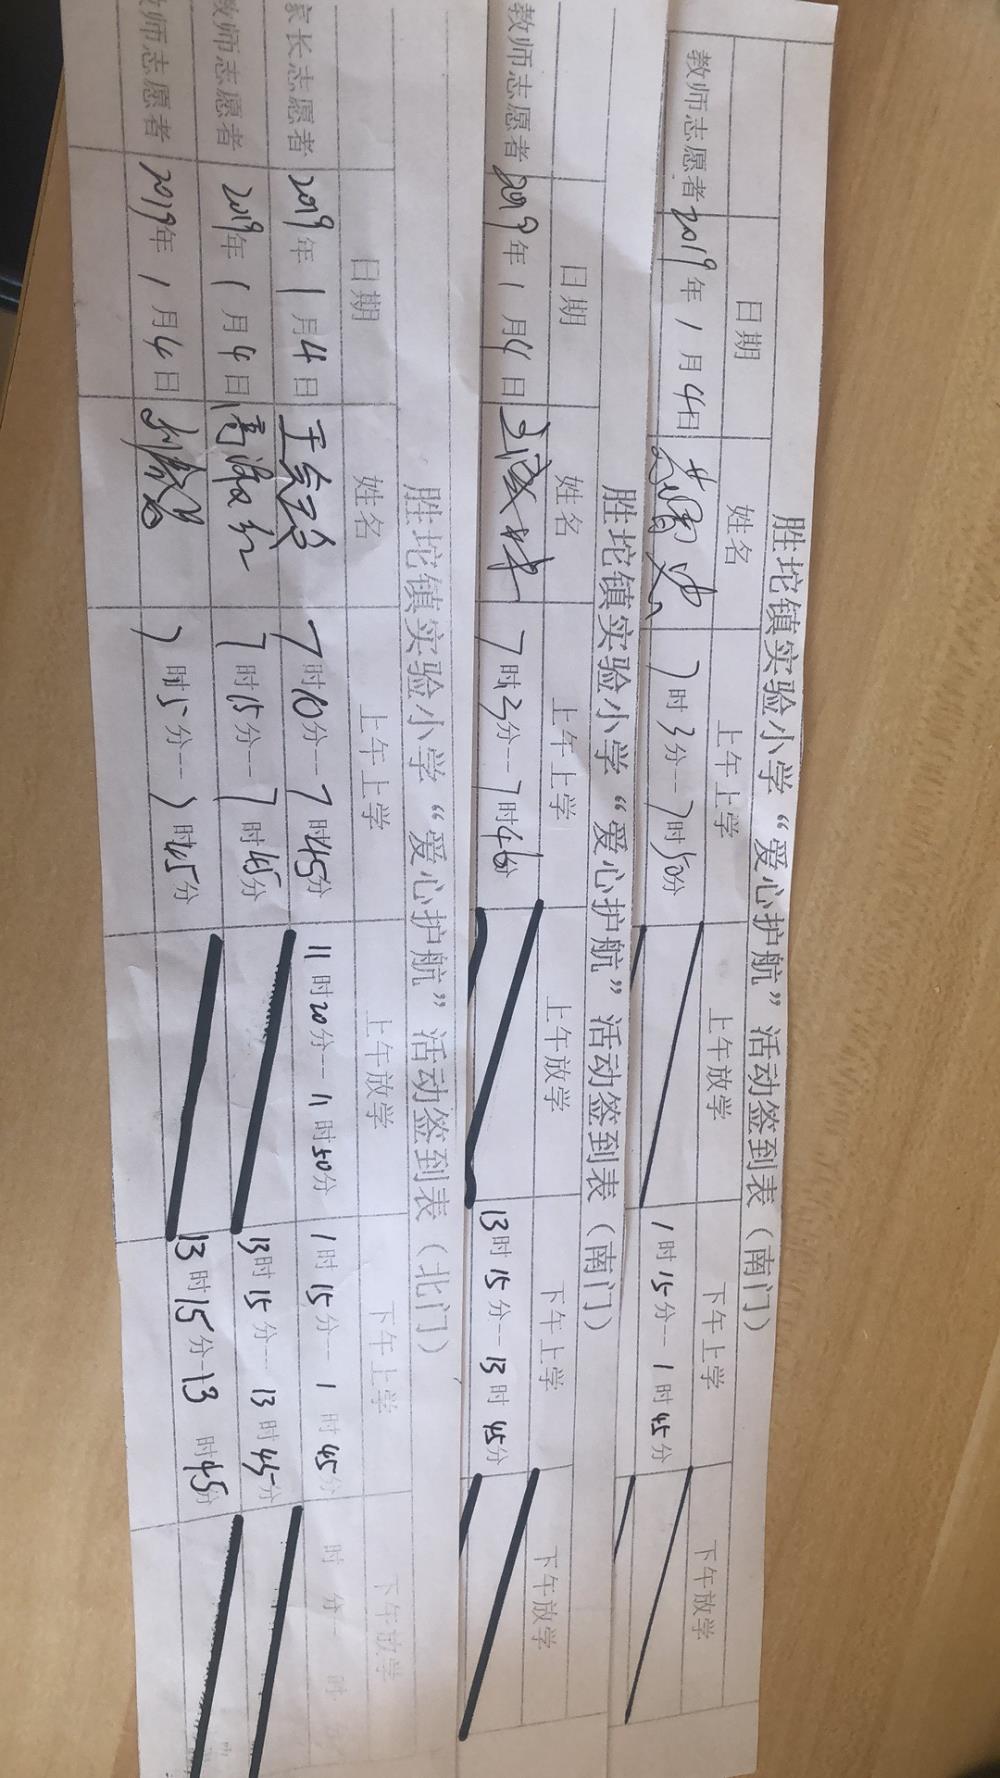 胜坨镇实验小学“爱心护航”活动签到表（南门）
日期 姓名 上午上学 上午放学 下午上学 下午放学
教师志愿者 2019年1月4日 7时3分--7时50分 1时15分--1时45分
胜坨镇实验小学“爱心护航”活动签到表（南门）
日期 姓名 上午上学 上午放学 下午上学 下午放学
教师志愿者 2019年1月4日 7时3分--7时46分 13时15分--13时45分
胜坨镇实验小学“爱心护航”活动签到表（北门）
日期 姓名 上午上学 上午放学 下午上学 下午放学
家长志愿者 2019年1月4日 7时10分--7时45分 11时20分--11时50分 1时15分--1时45分 时 分-- 时 分
教师志愿者 2019年1月4日 7时15分--7时45分 13时15分--13时45分
教师志愿者 2019年1月4日 7时15分--7时45分 13时15分-13时45分